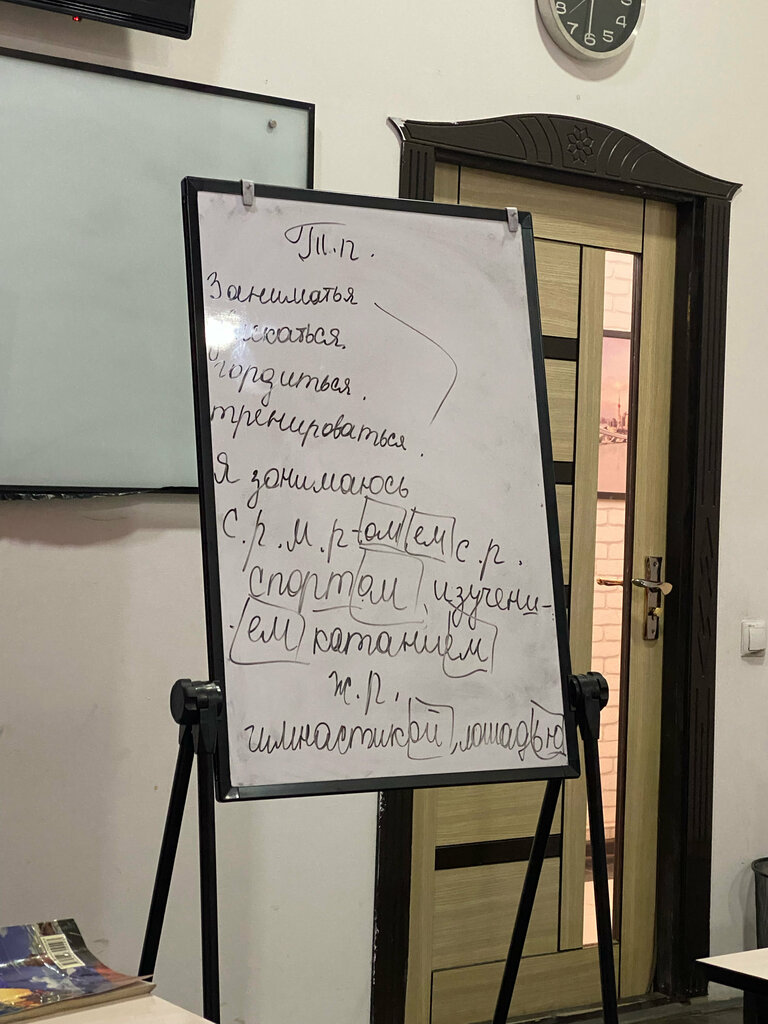 8 7 6 5 4
Т.п.
Заниматья
гордиться.
тренироваться.
Я зонимаюсь
с.р. м.р-ом ем с.р.
спортом, изучени-
ем катанием
ж.р.
гимнастикой, лошадью